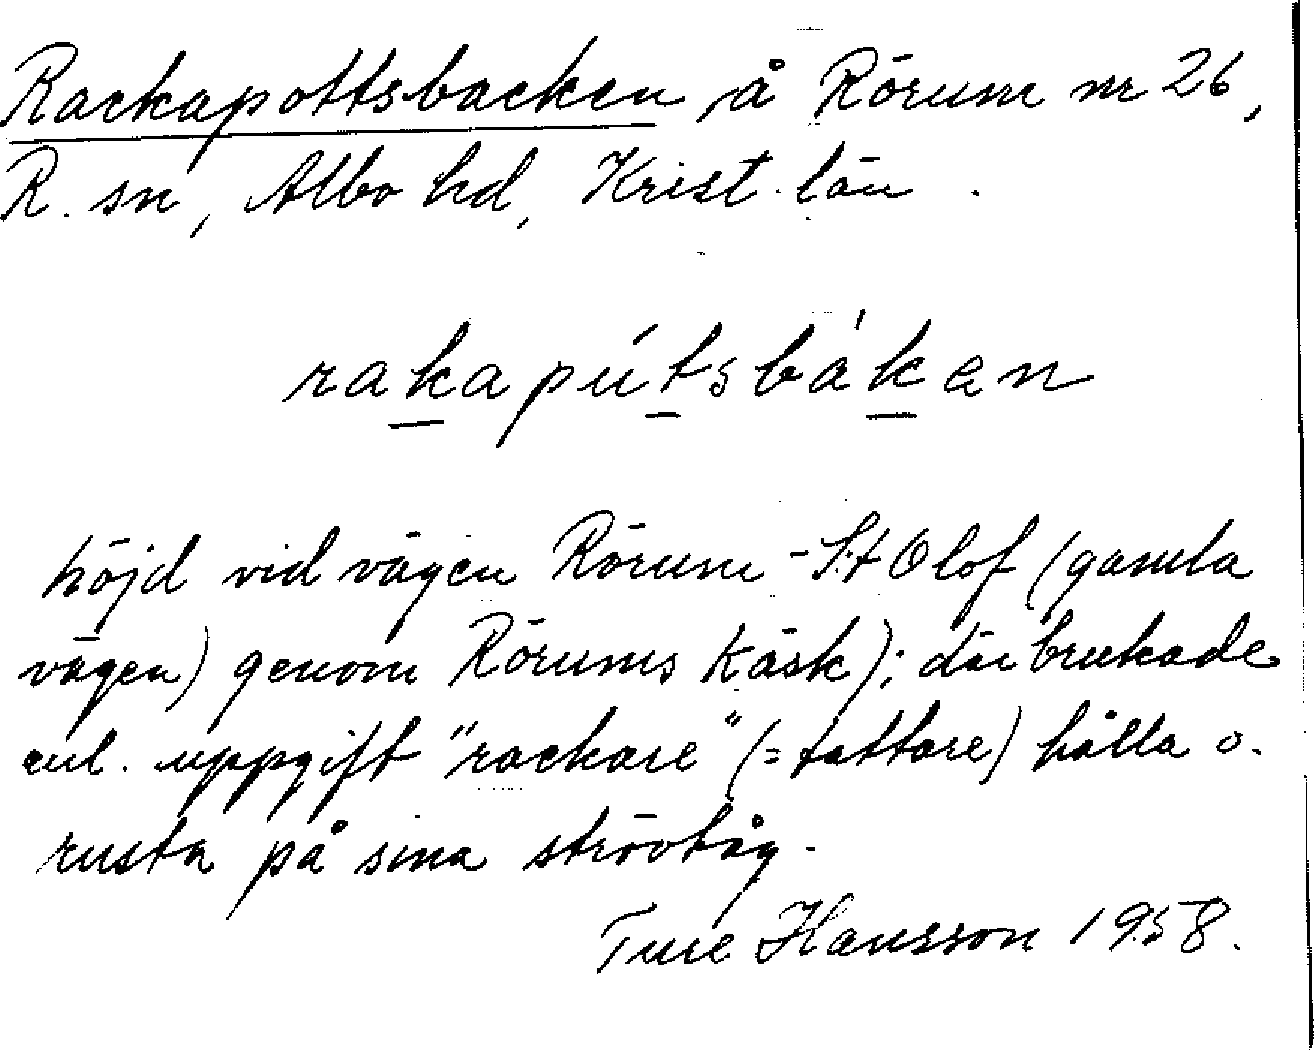 Rackapottsbacken å Rörum nr 26,
R. sn, Albo hd, Krist. län.
rakapútsbáken
höjd vid vägen Rörum - S:t Olof (gamla
vägen) genom Rörums Käsk); där brukade
enl. uppgift "rackare" (= tattare) hålla o.
rusta på sina strövtåg.
Ture Hansson 1958.